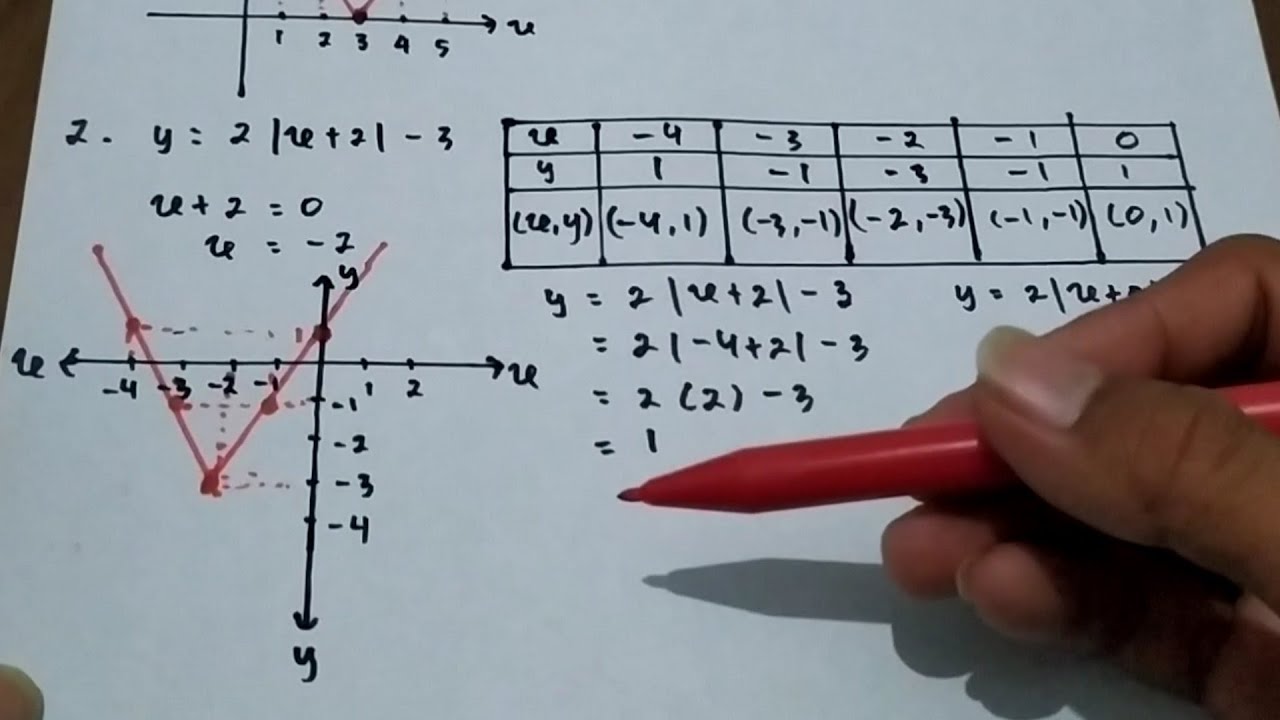 x
1 2 3 4 5
2. y = 2 |x + 2| - 3
x + 2 = 0
x = -2
x -4 -3 -2 -1 0
y 1 -1 -3 -1 1
(x,y) (-4,1) (-3,-1) (-2,-3) (-1,-1) (0,1)
y
1
x -4 -3 -2 -1 1 2 x
-1
-2
-3
-4
y
y = 2 |x + 2| - 3
= 2 |-4 + 2| - 3
= 2 (2) - 3
= 1
y = 2 |x +